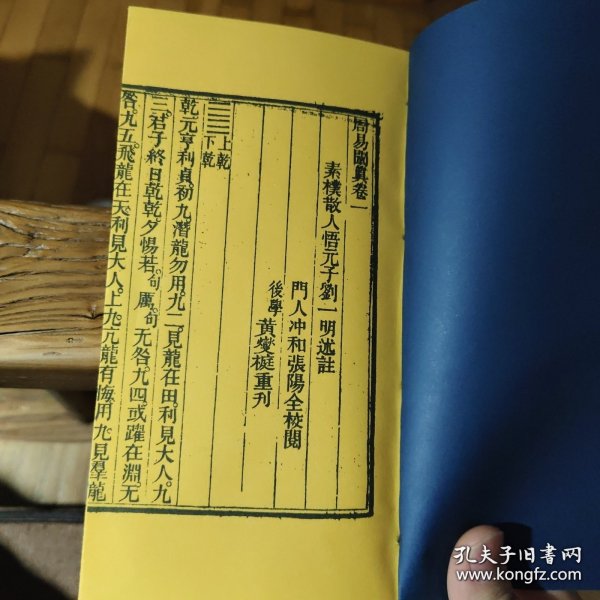 周易闡真卷一
素樸散人悟元子劉一明述註
門人冲和張陽全校閱
後學 黃燮榳重刊
上乾
下乾
乾元亨利貞初九潛龍勿用九二見龍在田利見大人九
三君子終日乾乾夕惕若句厲句无咎九四或躍在淵无
咎九五飛龍在天利見大人上九亢龍有悔用九見羣龍
孔夫子旧书网
www.kongfz.com